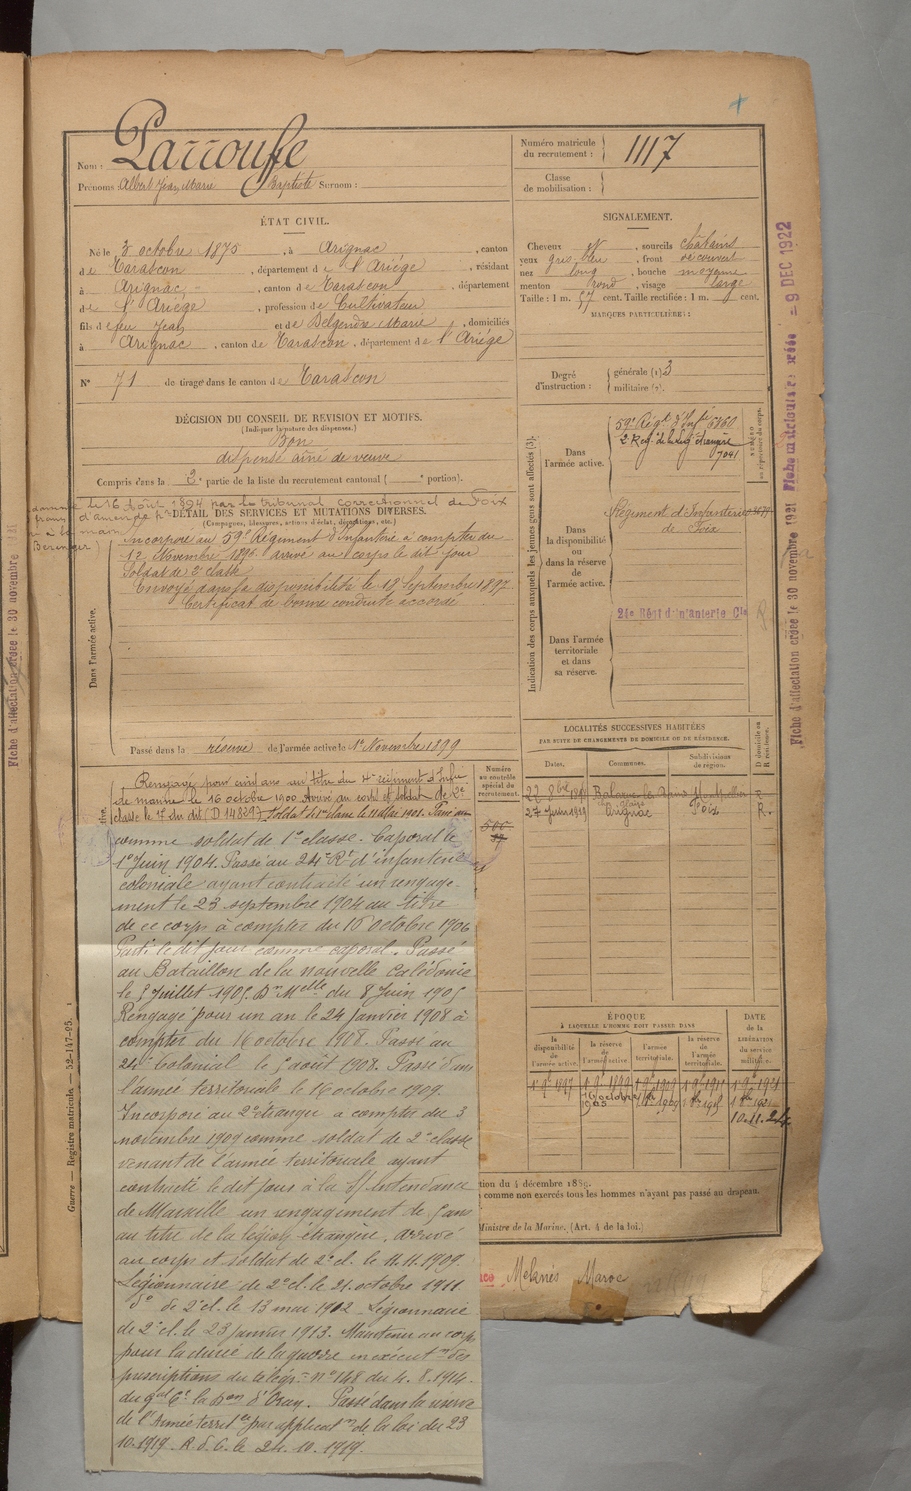 Nom : Parroufe
Prénoms : Albert Jean Marie Baptiste Surnom :
Numéro matricule du recrutement : 1117
Classe de mobilisation :
ÉTAT CIVIL.
Né le 3 octobre 1875, à Arignac, canton
de Tarascon, département de l'Ariége, résidant
à Arignac, canton de Tarascon, département
de l'Ariége, profession de Cultivateur
fils de feu Jean et de Delgendre Marie, domiciliés
à Arignac, canton de Tarascon, département de l'Ariége
N° 71 de tirage dans le canton de Tarascon
SIGNALEMENT.
Cheveux N, sourcils châtains
yeux gris bleu, front découvert
nez long, bouche moyenne
menton rond, visage large
Taille : 1 m. 57 cent. Taille rectifiée : 1 m. cent.
MARQUES PARTICULIÈRES :
Degré d'instruction : générale (1) 3
militaire (2).
DÉCISION DU CONSEIL DE REVISION ET MOTIFS.
(Indiquer la nature des dispenses.)
Bon
dispensé aîné de veuve
Compris dans la 2e partie de la liste du recrutement cantonal ( e portion).
le 16 Août 1894 par le tribunal correctionnel de Foix
d'amende pr
DÉTAIL DES SERVICES ET MUTATIONS DIVERSES.
(Campagnes, blessures, actions d'éclat, décorations, etc.)
Incorporé au 59e Régiment d'Infanterie à compter du
12 Novembre 1896 arrivé au corps le dit jour
Soldat de 2e classe
Envoyé dans la disponibilité le 18 Septembre 1897
Certificat de bonne conduite accordé
Dans l'armée active.
Passé dans la réserve de l'armée active le 1er Novembre 1899
Indication des corps auxquels les jeunes gens sont affectés (3).
Dans l'armée active.
59e Régt d'Infie 6860
2 Reg. de la Leg. étrangère
7041
NUMÉRO au répertoire du corps.
Dans la disponibilité ou dans la réserve de l'armée active.
Régiment d'Infanterie
de Foix
Dans l'armée territoriale et dans sa réserve.
24e Régt d'Infanterie Cle
LOCALITÉS SUCCESSIVES HABITÉES
PAR SUITE DE CHANGEMENTS DE DOMICILE OU DE RÉSIDENCE.
Dates. Communes. Subdivisions de région. D domicile ou R résidence.
Montpellier
27 Juin 1919 Arignac Foix R.
Numéro au contrôle spécial du recrutement.
Rengagé pour cinq ans au titre du 4e régiment d'Infie
de marine le 16 octobre 1900 Arrivé au corps et soldat de 2e
classe le 17 du dit
comme soldat de 1e classe. Caporal le
1er Juin 1904. Passé au 24e Rt d'infanterie
coloniale ayant contracté un rengage-
ment le 23 septembre 1904 au titre
de ce corps à compter du 16 octobre 1906
Parti le dit jour comme caporal. Passé
au Bataillon de la nouvelle Calédonie
le 5 Juillet 1905. Don Melle du 8 Juin 1905
Rengagé pour un an le 24 janvier 1908 à
compter du 16 octobre 1908. Passé au
24e Colonial le 5 août 1908. Passé dans
l'armée territoriale le 16 octobre 1909.
Incorporé au 2e étranger à compter du 3
novembre 1909 comme soldat de 2e classe
venant de l'armée territoriale ayant
contracté le dit jour à la S/Intendance
de Marseille un engagement de 5 ans
au titre de la légion étrangère. Arrivé
au corps et soldat de 2e cl. le 11.11.1909.
Légionnaire de 2e cl. le 21 octobre 1911
do de 2e cl. le 13 mai 1912. Légionnaire
de 2e cl. le 23 janvier 1913. Maintenu au corps
pour la durée de la guerre en exécutn des
prescriptions du télégr. n° 148 du 4.8.1914
du Gal Ct la Don d'Oran. Passé dans la réserve
de l'Armée territle par applicatn de la loi du 23
10.1919. R.d.C. le 24.10.1919.
ÉPOQUE
À LAQUELLE L'HOMME DOIT PASSER DANS
la disponibilité de l'armée active. la réserve de l'armée active. l'armée territoriale. la réserve de l'armée territoriale.
DATE de la LIBÉRATION du service militaire.
1 9e 1897 1 9e 1899 1 9e 1909 1 9e 1911 1 9e 1921
16 octobre 1905
10.11.24
4 décembre 1889.
comme non exercés tous les hommes n'ayant pas passé au drapeau.
Ministre de la Marine. (Art. 4 de la loi.)
Meknès Maroc
Guerre — Registre matricule — 52-147-95.
Fiche d'affectation créée le 30 novembre 1921
Fiche matriculaire créée le 9 DEC 1922
Fiche d'affectation créée le 30 novembre 1921